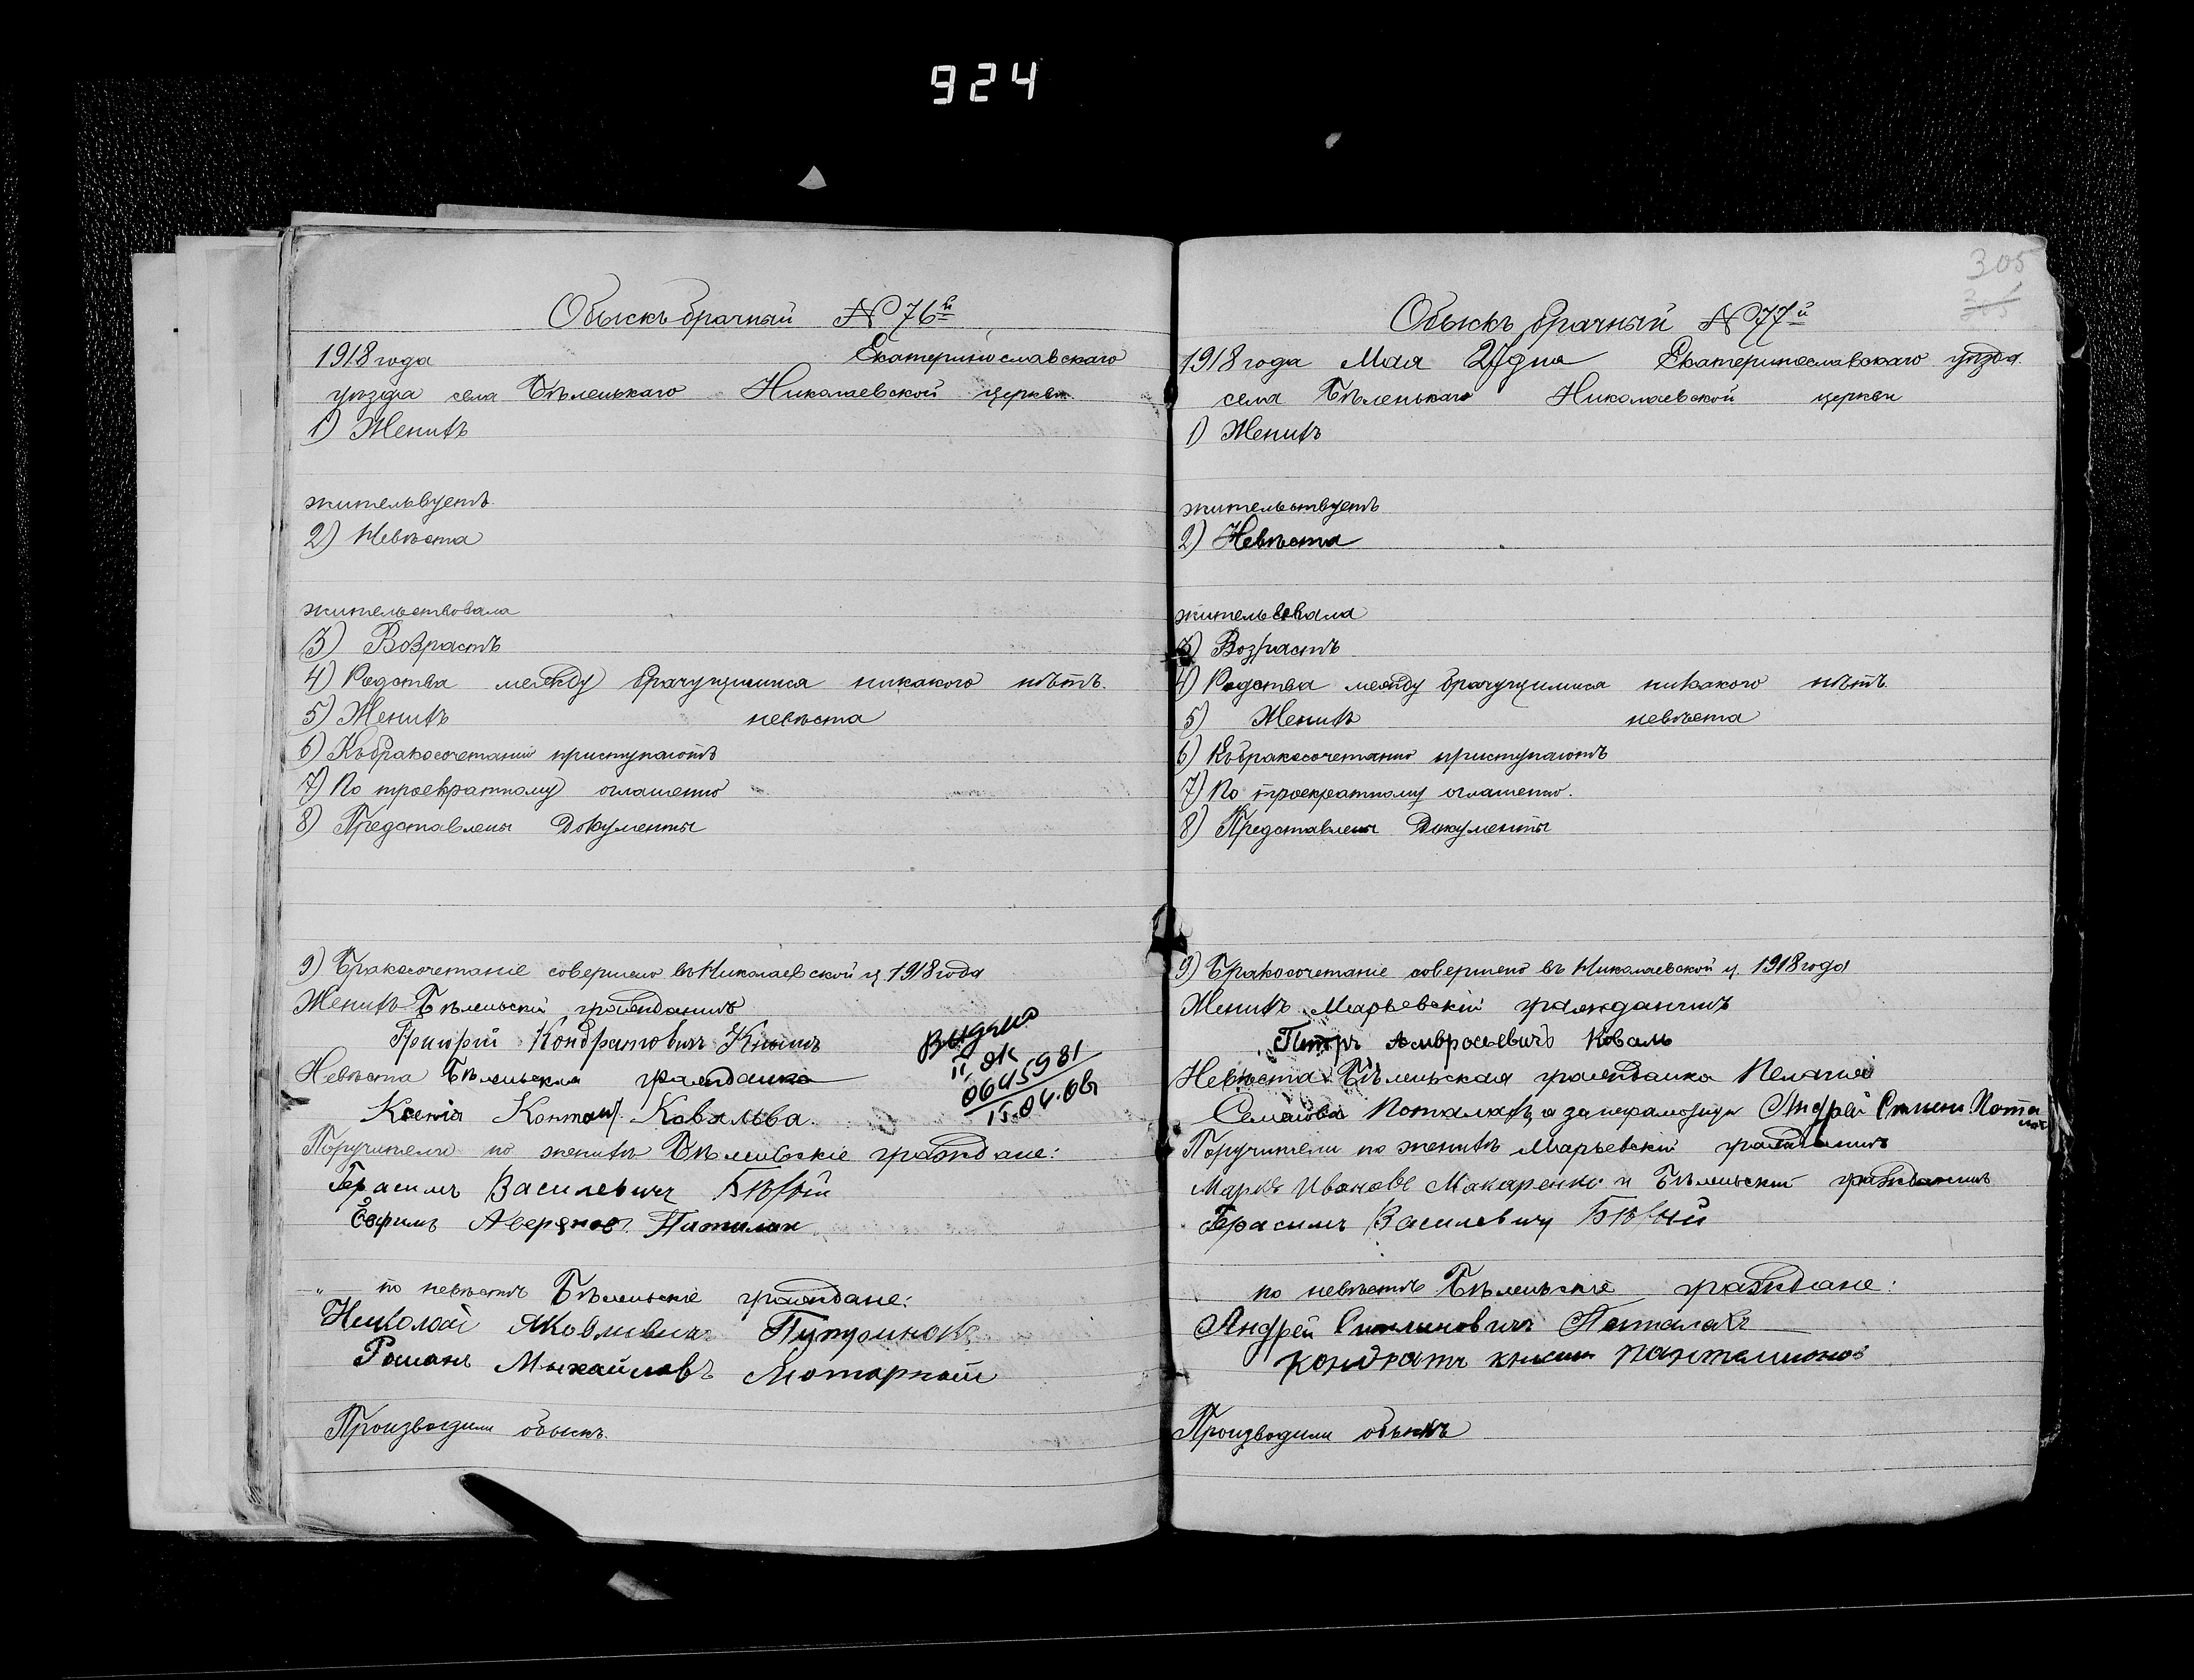 924
Обыскъ брачный № 76й
1918 года Екатеринославскаго
уѣзда села Бѣленькаго Николаевской церкви
1) Женихъ
жительвуетъ
2) Невѣста
жительствовала
3) Возрастъ
4) Родства между брачущимися никакого нѣтъ.
5) Женихъ невѣста
6) Къ бракосочетанію приступаютъ
7) По троекратному оглашенію
8) Представлены Документы
9) Бракосочетаніе совершено въ Николаевской ц 1918 года
Женихъ Бѣленьскій гражданинъ
Кондратовичъ
Невѣста Бѣленьская гражданка
Ксенія Ковальва
Выдано
0645981
15.04.
Поручители по женихѣ Бѣленьскіе граждане:
Герасимъ Василевичъ
Евфимъ Аверянов.
" по невѣстѣ Бѣленьскіе граждане:
Николай Яковлевичъ
Романъ Михайловъ Моторный
Производили обыскъ.
305
305
Обыскъ брачный № 77й
1918 года Мая 27 дня Екатеринославскаго уѣзда
села Бѣленькаго Николаевской церкви
1) Женихъ
жительствуетъ
2) Невѣста
жительсвала
3) Возрастъ
4) Родства между брачущимися никакого нѣтъ.
5) Женихъ невѣста
6) Къ бракосочетанію приступаютъ
7) По троекратному оглашенію.
8) Представлены Документы
9) Бракосочетаніе совершено въ Николаевской ц. 1918 года
Женихъ Марьевскій гражданинъ
Петръ Амвросьевичъ Коваль
Невѣста Бѣленьская гражданка Пелагія
Семенова Поталахъ, а за неграмотную Андрей
Поручители по женихѣ Марьевскій гражданинъ
Маркъ Ивановъ Макаренко и Бѣленьскій гражданинъ
Герасимъ Василевичъ
по невѣстѣ Бѣленьскіе граждане:
Андрей Поталахъ
Кондратъ Пантелимонов
Производили обыскъ